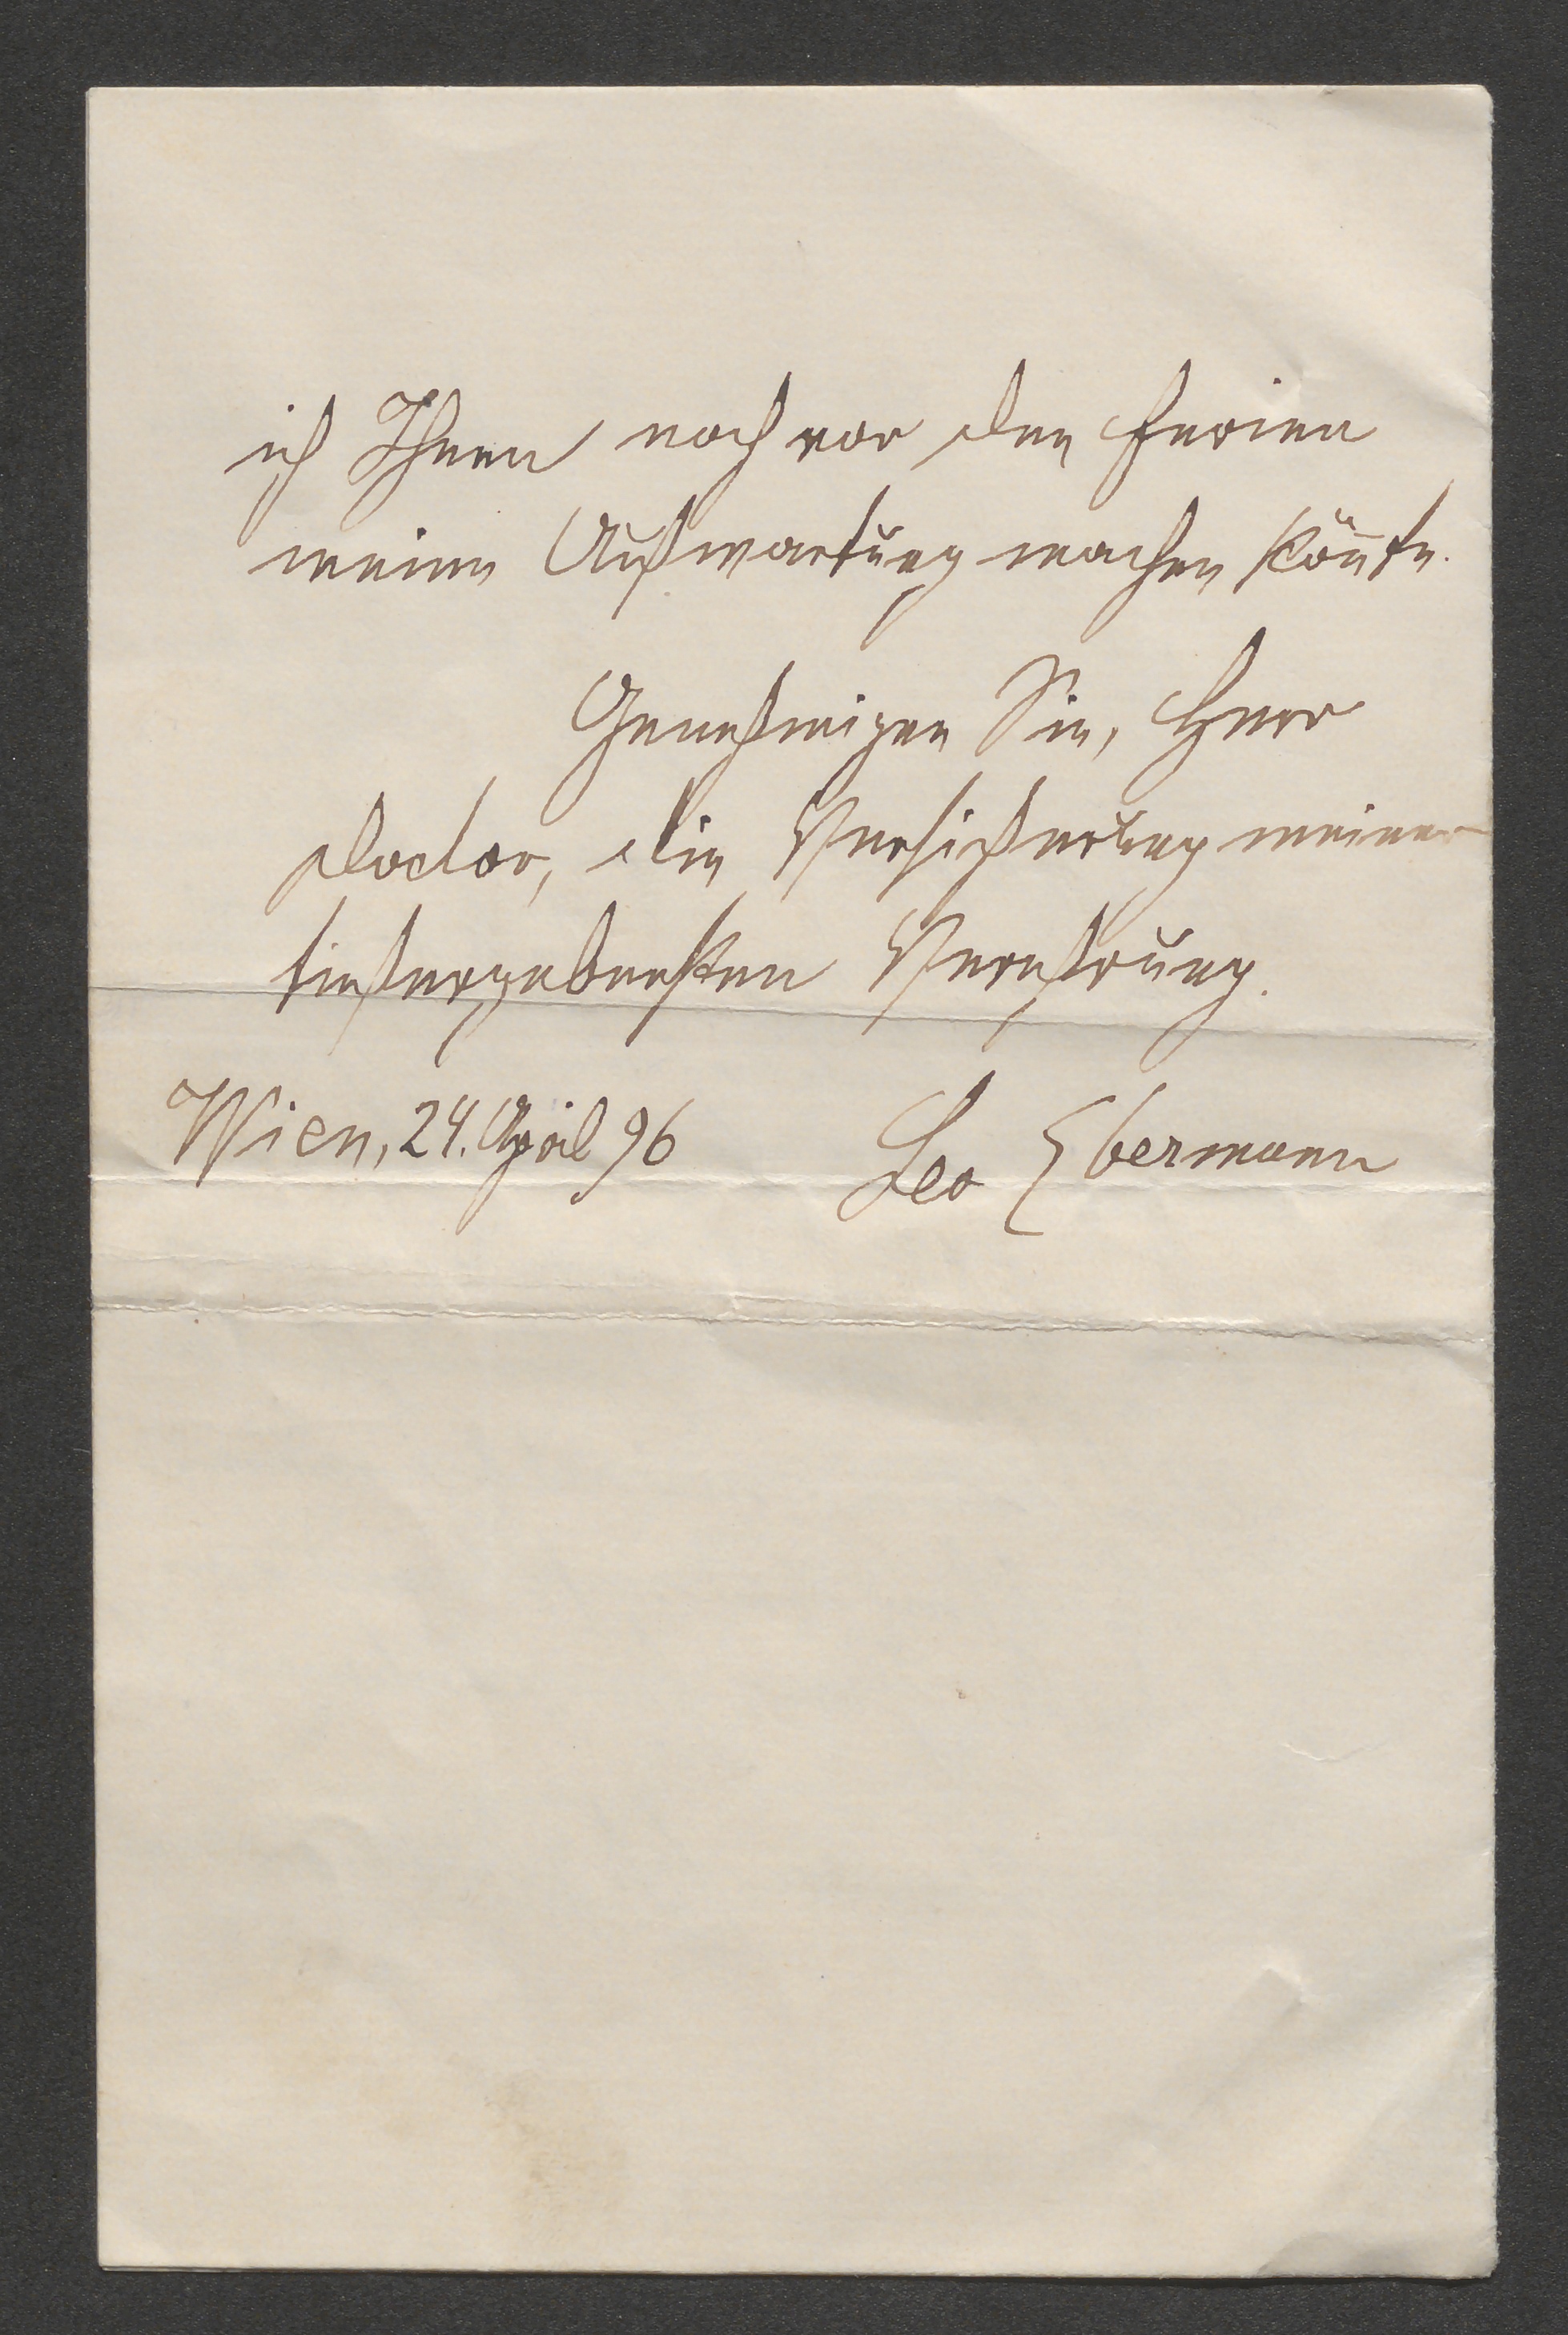 ich Ihnen noch vor den Ferien
meine Aufwartung machen kön̄te.
Genehmigen Sie, Herr
Doctor, die Versicherung meiner
tiefergebensten Verehrung.
Wien, 24. April 96
Leo Ebermann